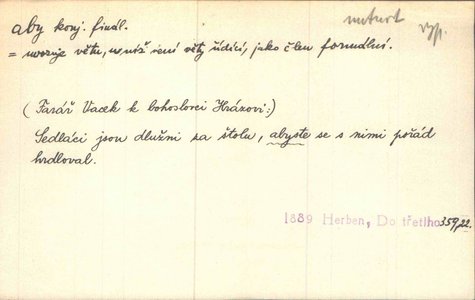 aby konj. finál.
nutnost
vyp.
= uvozuje větu, v níž není věty řídící, jako člen formální.
(Farář Vacek k bohoslovci Hrázovi:)
Sedláci jsou dlužni za štolu, abyste se s nimi pořád
hrdloval.
1889 Herben, Do třetího 359,22.